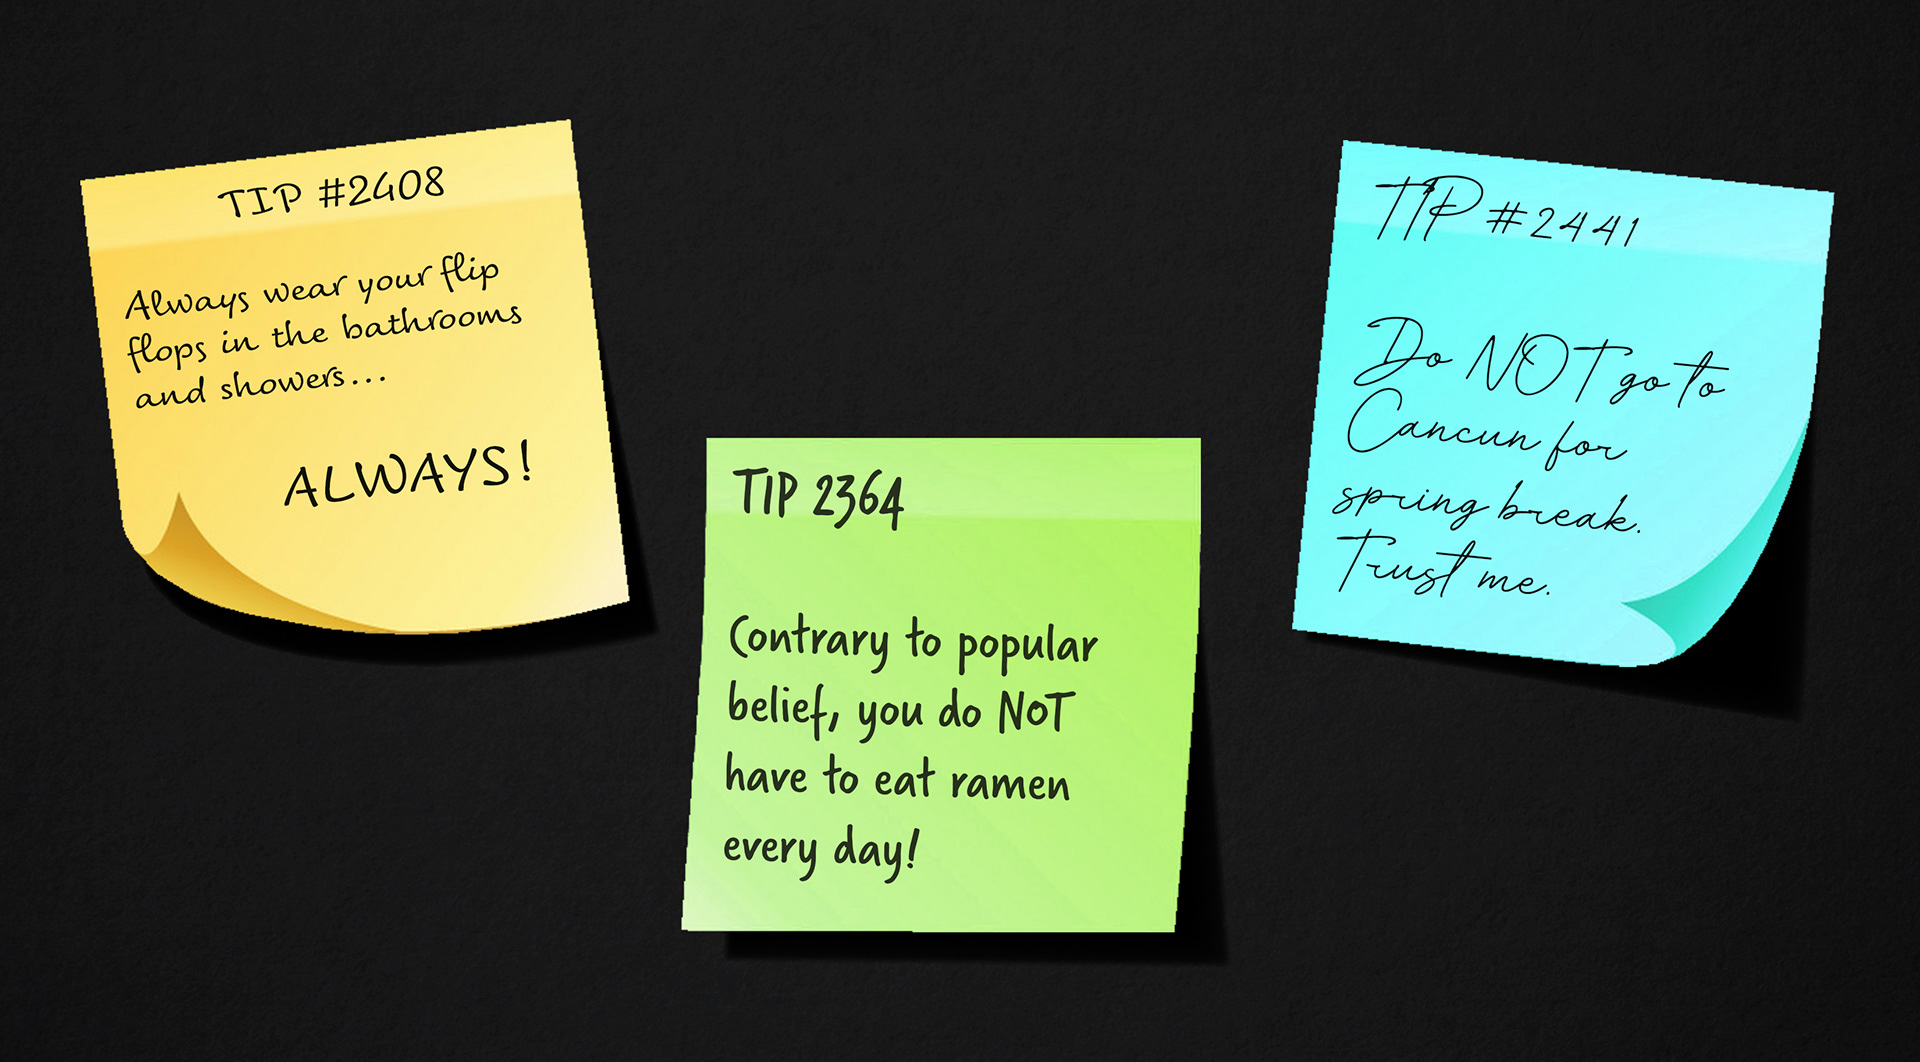 TIP #2408
Always wear your flip
flops in the bathrooms
and showers...
ALWAYS!
TIP 2364
Contrary to popular
belief, you do NOT
have to eat ramen
every day!
TIP #2441
Do NOT go to
Cancun for
spring break.
Trust me.